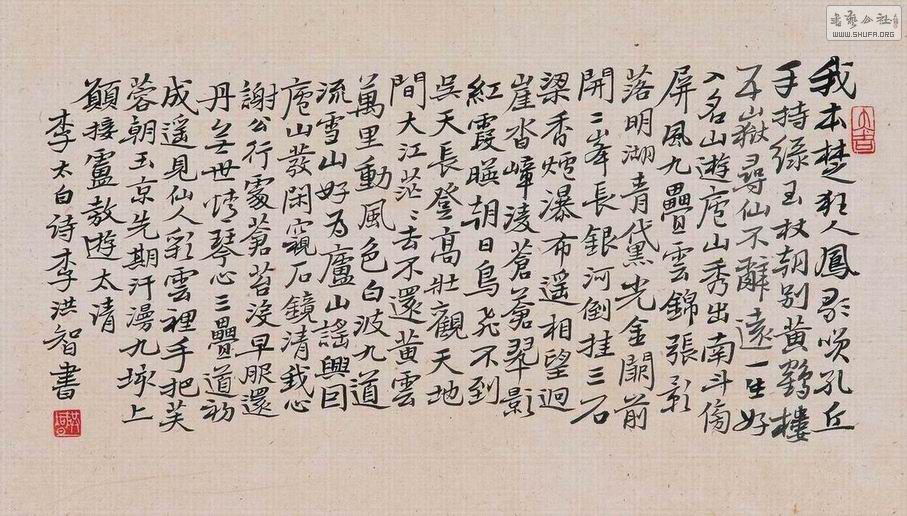 我本楚狂人鳳歌咲孔丘
手持綠玉杖朝別黃鶴樓
五嶽尋仙不辭遠一生好
入名山遊庐山秀出南斗傍
屏風九疊雲錦張影
落明湖青黛光金闕前
開二峯長銀河倒挂三石
梁香爐瀑布遥相望迴
崖沓嶂凌蒼蒼翠影
紅霞暎朝日鳥飛不到
吳天長登高壯觀天地
間大江茫〻去不還黃雲
萬里動風色白波九道
流雪山好為廬山謠興因
庐山發閑窺石鏡清我心
謝公行處蒼苔沒早服還
丹无世情琴心三疊道初
成遥見仙人彩雲裡手把芙
蓉朝玉京先期汗漫九垓上
願接盧敖遊太清
李太白诗李洪智書
書藝公社
WWW.SHUFA.ORG